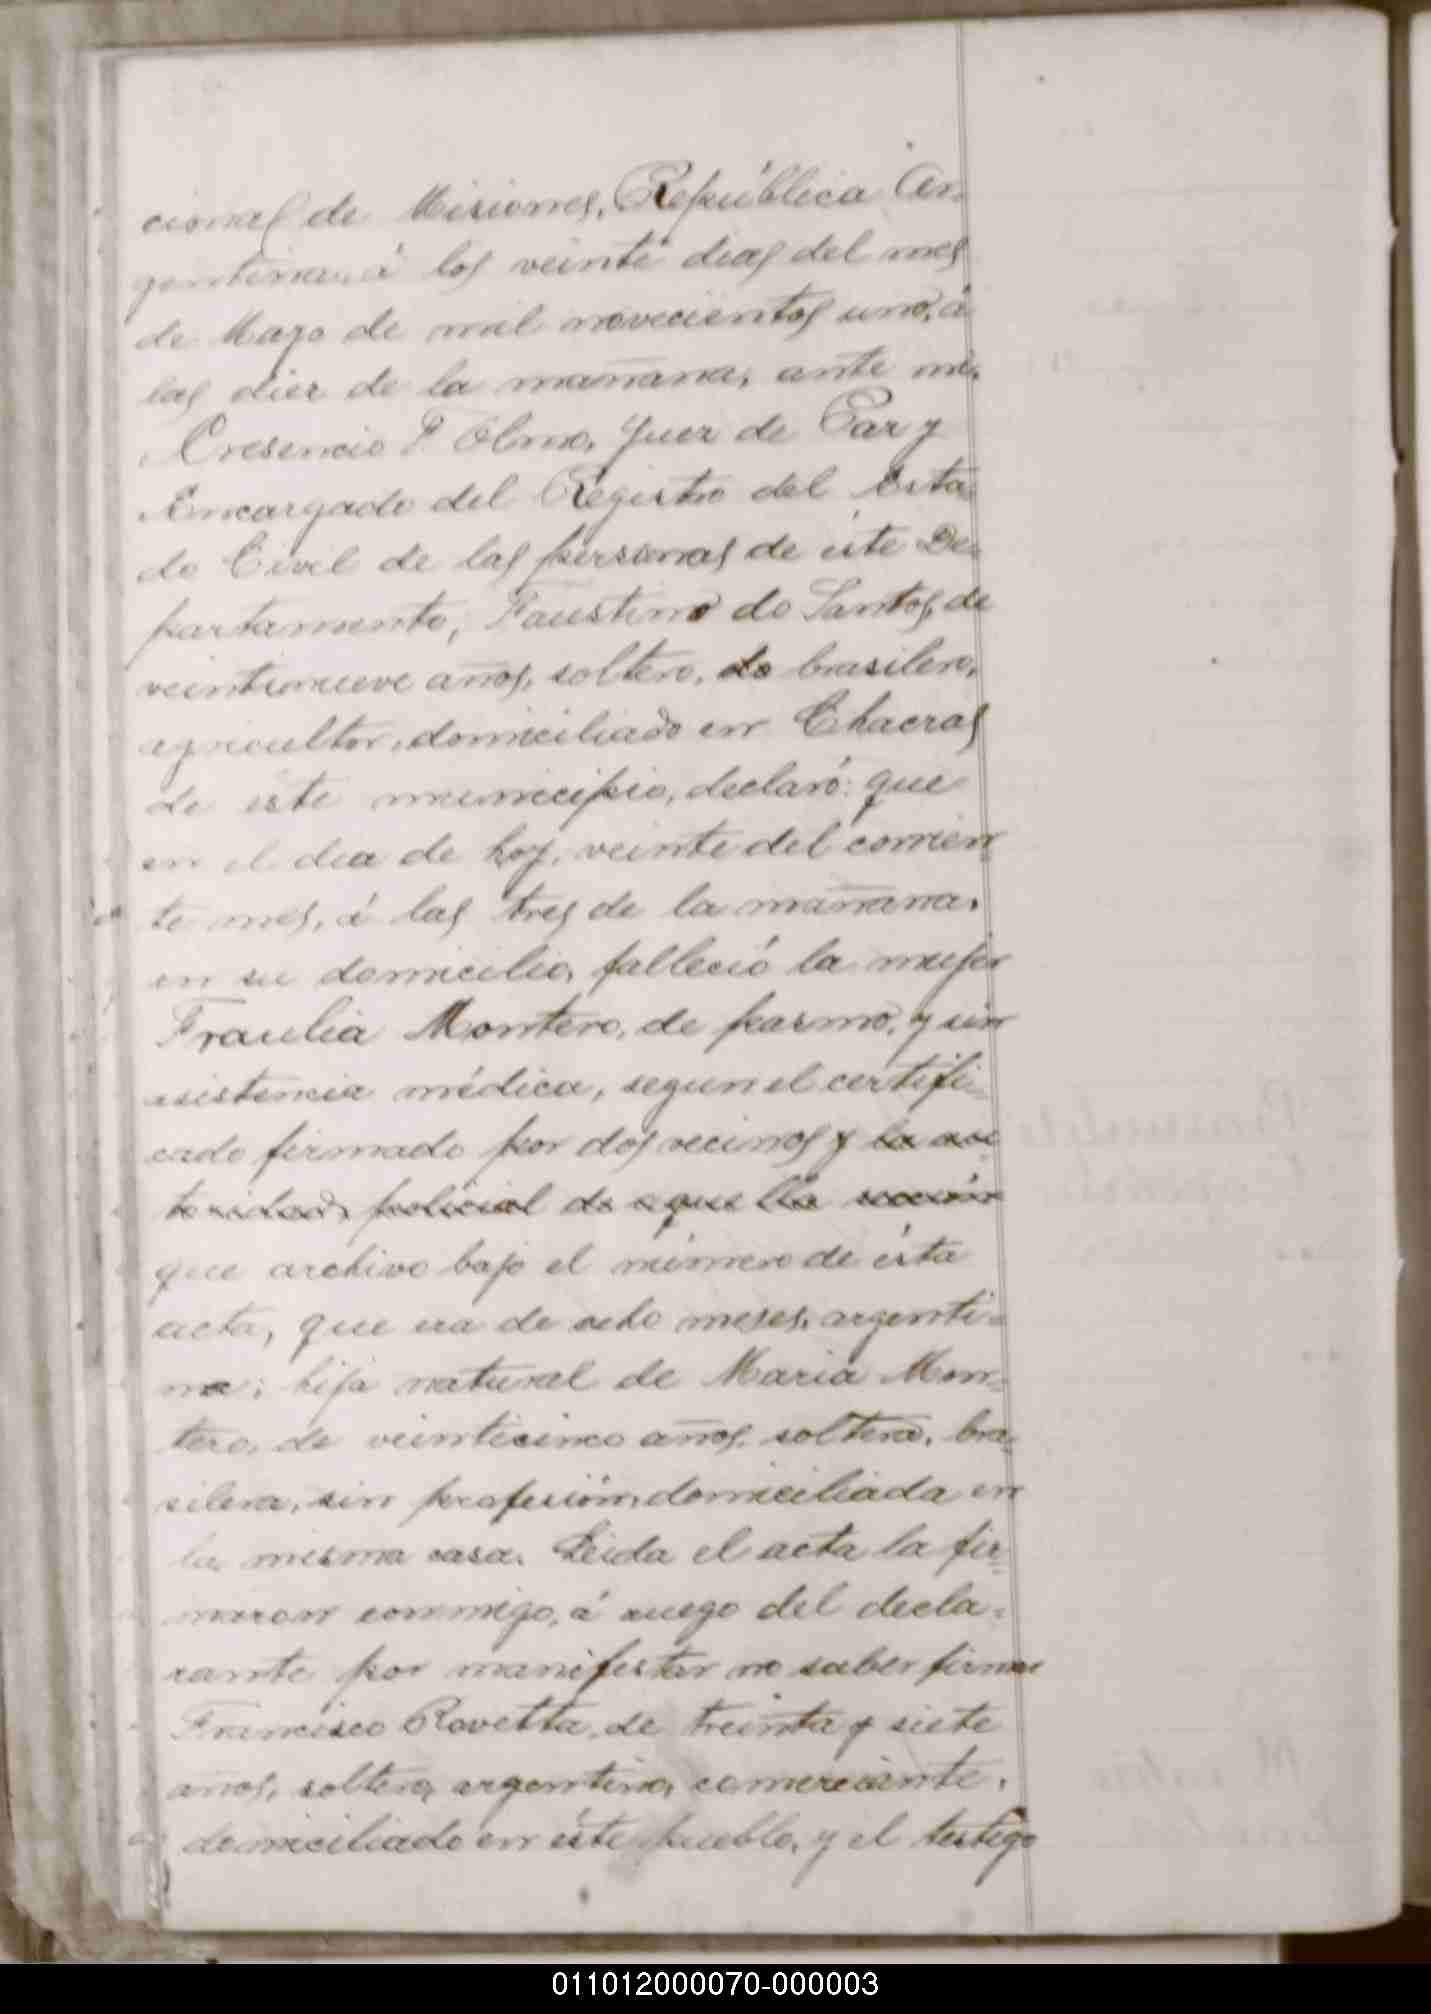 cional de Misiones, República Ar-
gentina, á los veinte dias del mes
de Mayo de mil novecientos uno, á
las diez de la mañana, ante mi,
Cresencio F. Olmo, Juez de Paz y
Encargado del Registro del Esta-
do Civil de las personas de éste De-
partamento, Faustino do Santos, de
veintinueve años, soltero, do brasilero,
agricultor, domiciliado en Chacras
de este municipio, declaró: que
en el dia de hoy, veinte del corrien
te mes, á las tres de la mañana,
en su domicilio, falleció la mujer
Fraulia Montero, de pasmo, y sin
asistencia médica, segun el certifi-
cado firmado por dos vecinos y la au-
toridad policial de aquella sección
que archivo bajo el número de ésta
acta, que era de ocho meses, argenti-
na; hija natural de Maria Mon-
tero, de veinticinco años, soltera, bra-
silera, sin profesión, domiciliada en
la misma casa. Leida el acta la fir-
maron conmigo, á ruego del decla-
rante por manifestar no saber firmar
Francisco Rovetta, de treinta y siete
años, soltero, argentino, comerciante,
domiciliado en éste pueblo, y el testigo
011012000070-000003